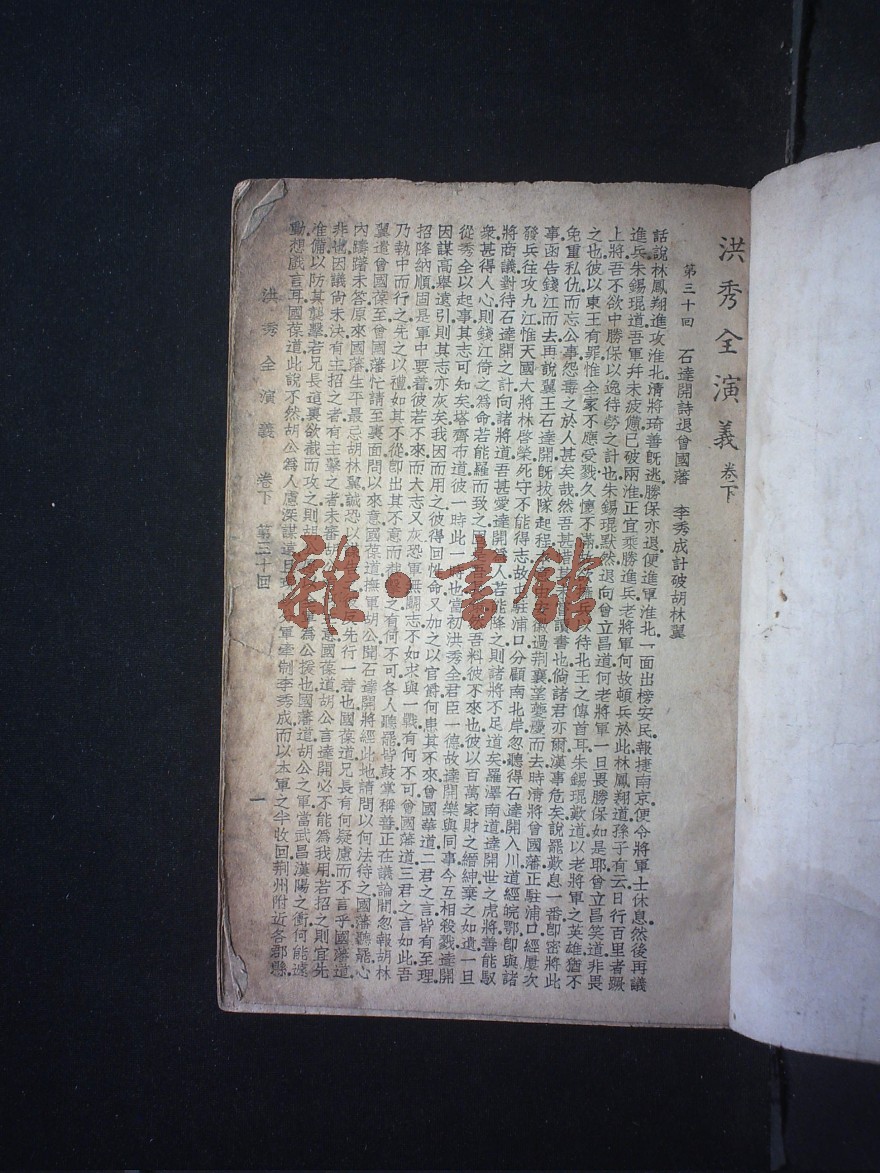 洪秀全演義 卷下
第三十回 石達開詩退曾國藩 李秀成計破胡林翼
話說林鳳翔進攻淮北清將琦善既逃勝保亦退便進軍淮北一面出榜安民報捷南京便令將軍士休息然後再議
進兵朱錫琨道吾軍幷未疲憊已破兩淮正宜乘勝進兵老將軍何故頓兵於此林鳳翔道孫子有云日行百里者蹶
上將吾不欲中勝保以逸待勞之計也朱錫琨默然退向曾立昌道何老將軍一旦畏勝保如是耶曾立昌笑道非畏
之也彼以東王有罪惟全家不應受戮久懷不滿待北王之傳首耳朱錫琨歎道以老將軍之英雄猶不
免重私仇而忘公事怨毒之於人甚矣哉然吾甚惜讀書也倘諸君亦爾漢事危矣說罷歎息一番卽密將此
事函告錢江而去再說翼王石達開既拔隊起程過荆襄望夔慶而去時清將曾國藩正駐浦口經屢次
發兵往攻九江惟天國大將林啓榮死守不能得志故駐浦口分顧南北岸忽聽得石達開入川道經皖鄂卽與諸
將商議對待石達開之計向諸將道吾甚愛達開爲人若能降之則諸將不足道矣羅澤南道達開世之虎將善能馭
衆甚得人心則錢江倚之爲命若能羅而致之吾料彼不來也彼以百萬家財之縉紳棄之如遺一旦
從秀全以起事其志可知矣塔齊布道彼一時此一時也當初洪秀全君臣一德故達開樂與同事今互相殺戮達開
因謀高舉遠引則其志亦灰矣我因而用之彼得回性命又加之以官爵何患其不來曾國華道二君之言皆有至理
招降納順固是軍中要着彼若不來而大志又灰恐軍無鬭志不如求與一戰有何不可曾國藩道三君之言如此吾
乃執中而行之先之以禮如其不從卽出其不意而截擊之有何不可各人聽罷皆鼓掌稱善正在議論間忽報胡林
翼遣曾國葆至曾國藩忙請至裏面問以來意國葆道撫軍胡公聞石達開將經此地請問以何法待之國藩聽罷心
內躊躇未答原來國藩生平最忌胡林翼誠恐以先行一着也國葆道兄長有何疑慮而不言乎國藩道
非也因議尙未決有主招之者有主擊之者未審胡意國葆道胡公言達開必不能爲我用若招之則宜先
准備以防其襲擊若兄長這裏欲截而攻之則胡軍爲公援也國藩道胡公之軍當武昌漢陽之衝何能遽
動想戲言耳國葆道此說不然胡公爲人慮深謀遠軍牽制李秀成而以本軍之半收回荆州附近各郡縣
洪秀全演義 卷下 第三十回 一
雜·書館